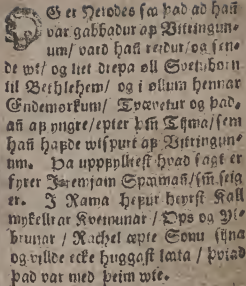 OG er Herodes sa þad ad hañ
var gabbadur ap Vitringun-
um / vard hañ reidur / og sen-
de wt / og liet drepa øll Sveinbørn
til Bethlehem / og i øllum hennar
Endemørkum / Tvævetur og þad-
añ ap yngre / epter þm̃ Tijma / sem
hañ hapde wtspurt ap Vitringun-
um. Þa uppfylltest hvad sagt er
fyrer Jeremiam Spamañ / sm̃ seig
er. I Rama hepur heyrst Kall
mykellrar Kveinunar / Ops og Yle
brunar / Rachel æpte Sonu sijna
og villde ecke huggast lata / þviad
þad var med þeim wte.